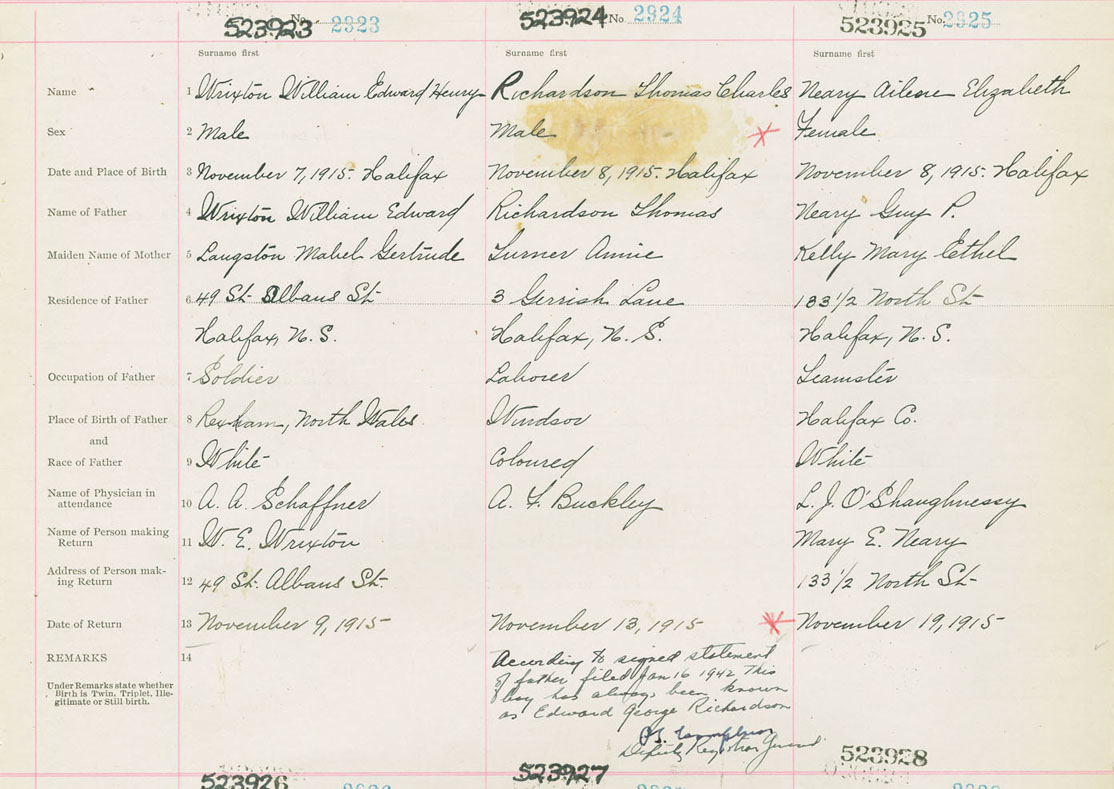 523923 No. 2923 523924 No. 2924 523925 No. 2925
Surname first Surname first Surname first
Name 1 Wrixton William Edward Henry Richardson Thomas Charles Neary Ailene Elizabeth
Sex 2 Male Male Female
Date and Place of Birth 3 November 7, 1915. Halifax November 8, 1915. Halifax November 8, 1915. Halifax
Name of Father 4 Wrixton William Edward Richardson Thomas Neary Guy P.
Maiden Name of Mother 5 Langston Mabel Gertrude Turner Annie Kelly Mary Ethel
Residence of Father 6 49 St. Albans St. 3 Gerrish Lane 133 1/2 North St.
Halifax, N. S. Halifax, N. S. Halifax, N. S.
Occupation of Father 7 Soldier Laborer Teamster
Place of Birth of Father 8 Rexham, North Wales Windsor Halifax Co.
and
Race of Father 9 White Coloured White
Name of Physician in
attendance 10 A. A. Schaffner A. F. Buckley L. J. O'Shaughnessy
Name of Person making
Return 11 W. E. Wrixton Mary E. Neary
Address of Person mak-
ing Return 12 49 St. Albans St. 133 1/2 North St.
Date of Return 13 November 9, 1915 November 13, 1915 November 19, 1915
REMARKS 14
Under Remarks state whether
Birth is Twin, Triplet, Ille-
gitimate or Still birth.
According to signed statement
of father filed Jan 16 1942 this
boy has always been known
as Edward George Richardson
Deputy Registrar General
523926 523927 523928